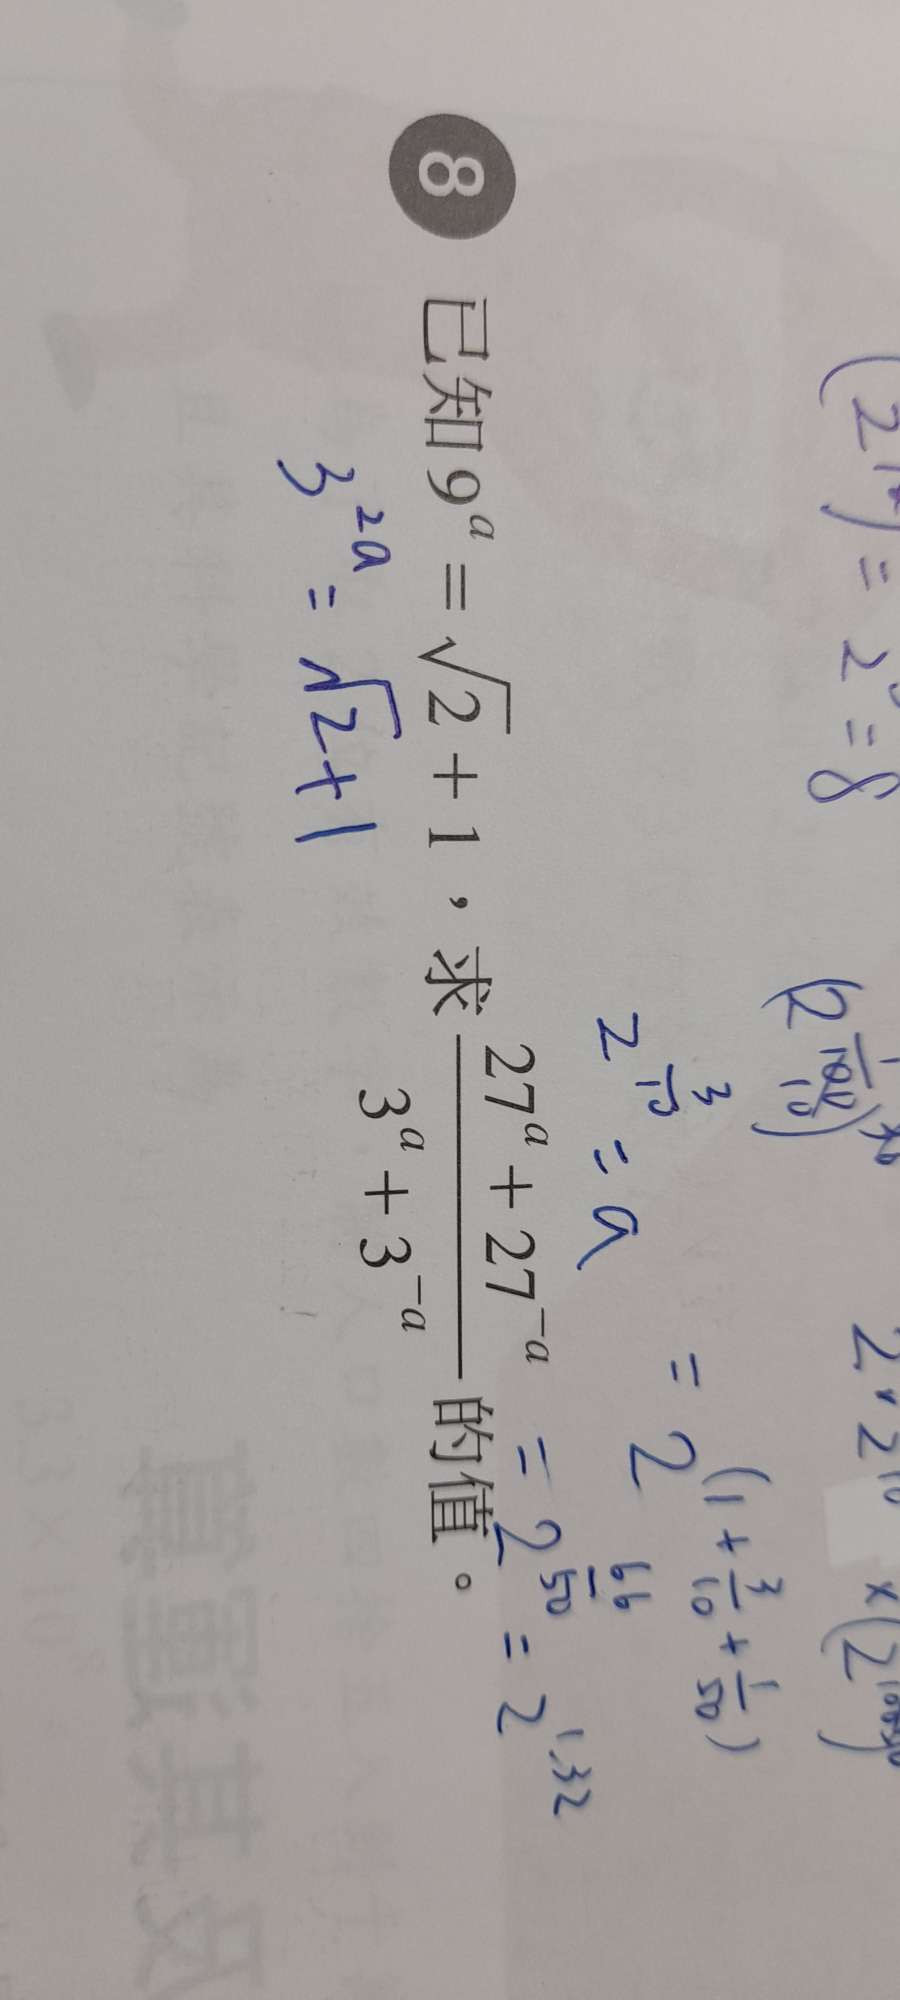 (2
= 2 = 8
2
2
3/10
2 = a
= 2^(1 + 3/10 + 1/50)
8 已知 9^a = √2 + 1，求 (27^a + 27^-a)/(3^a + 3^-a) 的值。
= 2^(66/50) = 2^1.32
3^2a = √2+1